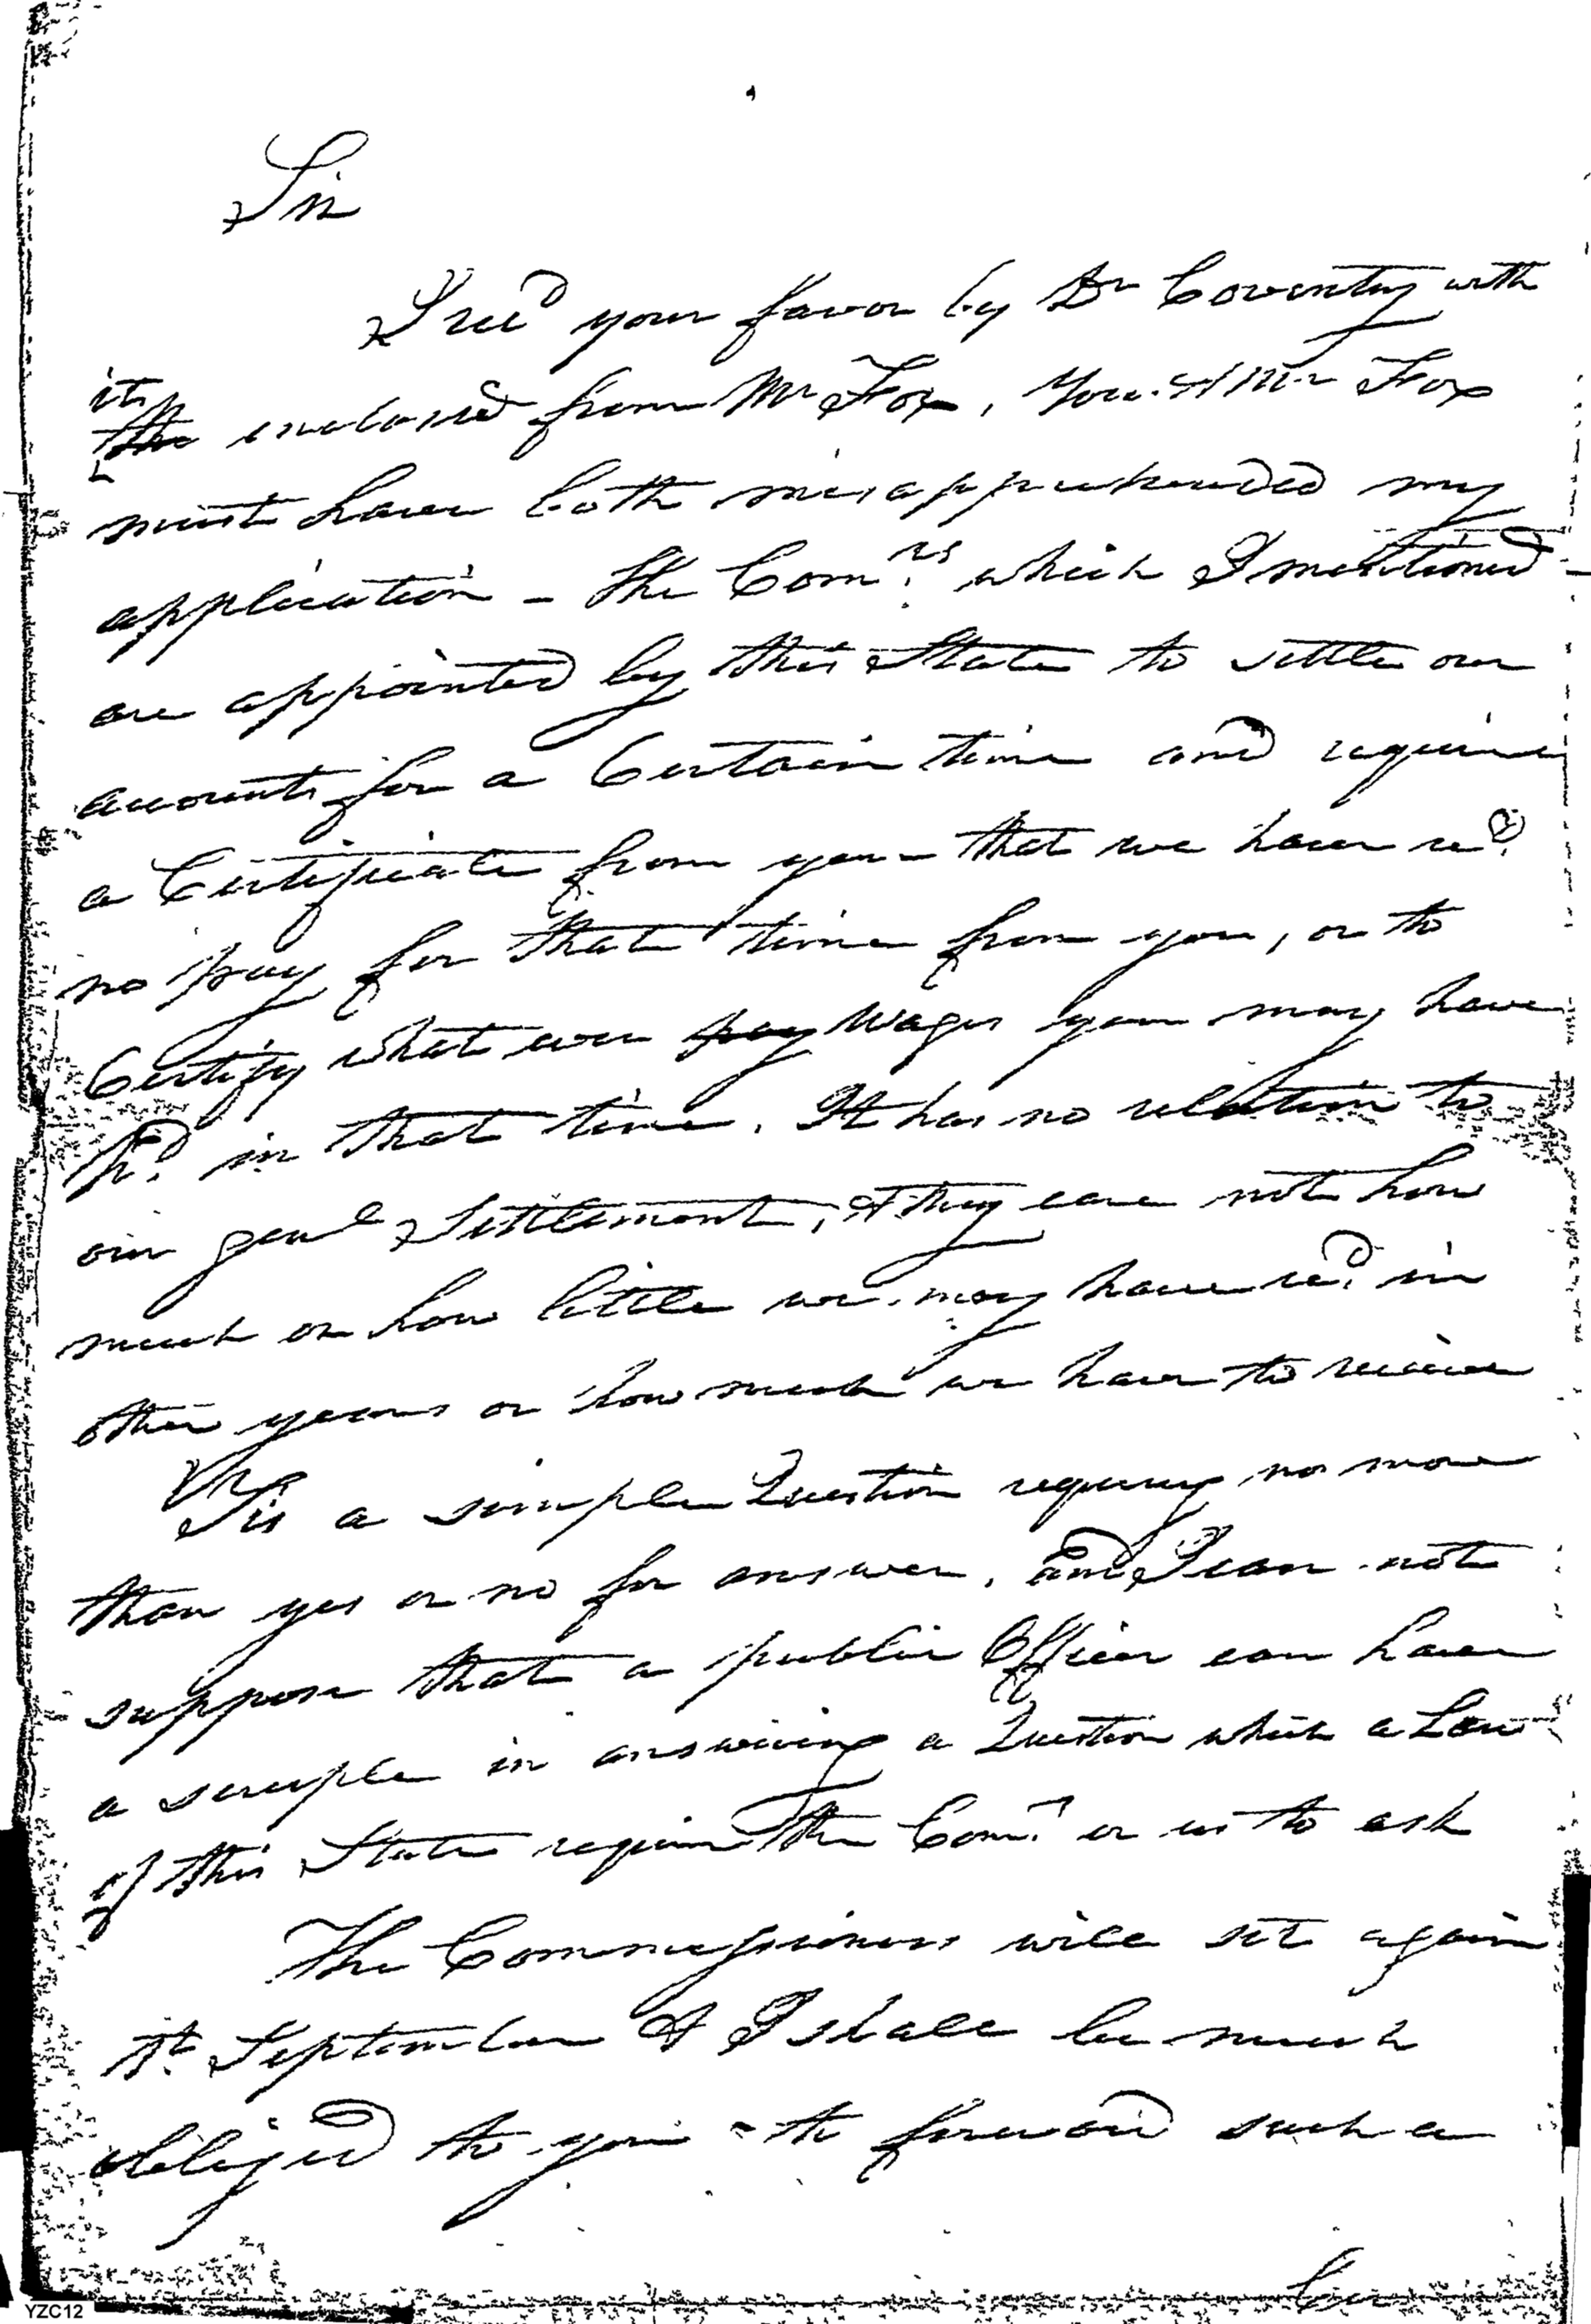 Sir
I recd your favor by Dr Coventry with
its
the enclosed from Mr Fox, You & Mr Fox
must have both misapprehended my
application - the Comrs which I mentioned
are appointed by this State to settle our
accounts for a Certain time and require
a Certificate from you - that we have recd
no pay for that time from you, or to
Certify what ever pay Wages you may have
pd in that time. It has no relation to
our genl Settlement, & they care not how
much or how little we may have recd in
other years or how much we have to receive
Tis a simple Question requiring no more
than yes or no for answer, and I can not
suppose that a public Officer can have
a scruple in answering a Question which a Law
of this State requires the Comrs or us to ask
The Commissioners will set again
1st September & I shall be much
obliged to you - to forward such a
Cer
YZC12